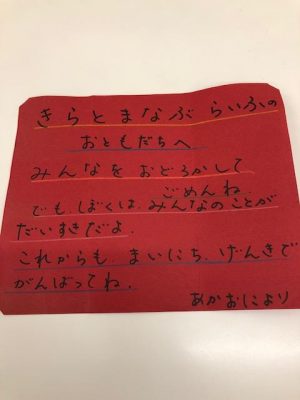 きらとまなぶ らいふの
おともだちへ
みんなを おどろかして
ごめんね。
でも、ぼくは、みんなのことが
だいすきだよ。
これからも、まいにち、げんきで
がんばってね。
あかおにより